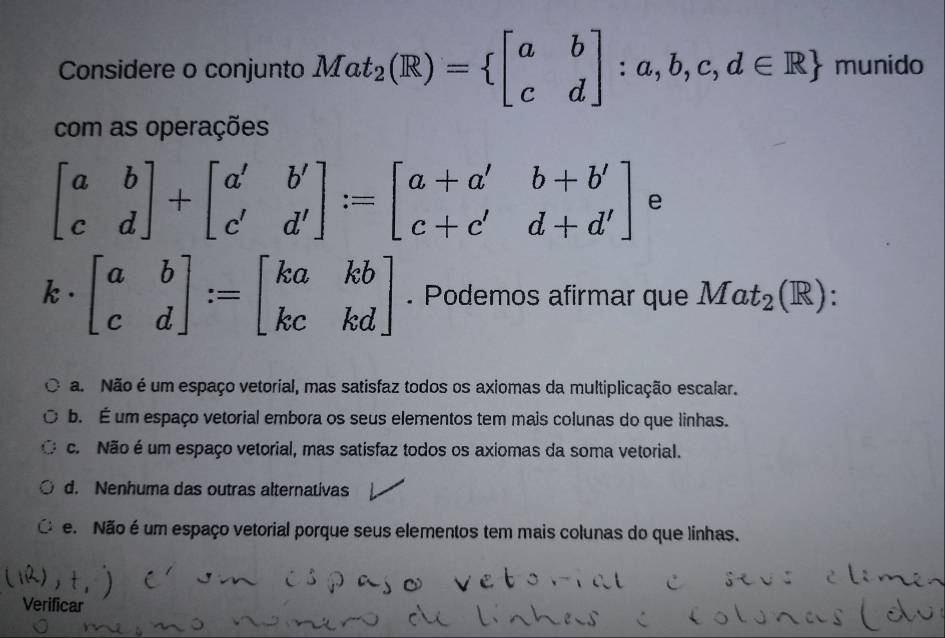 Considere o conjunto Mat₂(ℝ) = {[a b; c d] : a, b, c, d ∈ ℝ} munido
com as operações
[a b; c d] + [a′ b′; c′ d′] := [a + a′ b + b′; c + c′ d + d′] e
k · [a b; c d] := [ka kb; kc kd]. Podemos afirmar que Mat₂(ℝ):
a. Não é um espaço vetorial, mas satisfaz todos os axiomas da multiplicação escalar.
b. É um espaço vetorial embora os seus elementos tem mais colunas do que linhas.
c. Não é um espaço vetorial, mas satisfaz todos os axiomas da soma vetorial.
d. Nenhuma das outras alternativas ✓
e. Não é um espaço vetorial porque seus elementos tem mais colunas do que linhas.
(ℝ), +, ·) é um espaço vetorial e seus elemen
Verificar
o mesmo número de linhas e colunas (du